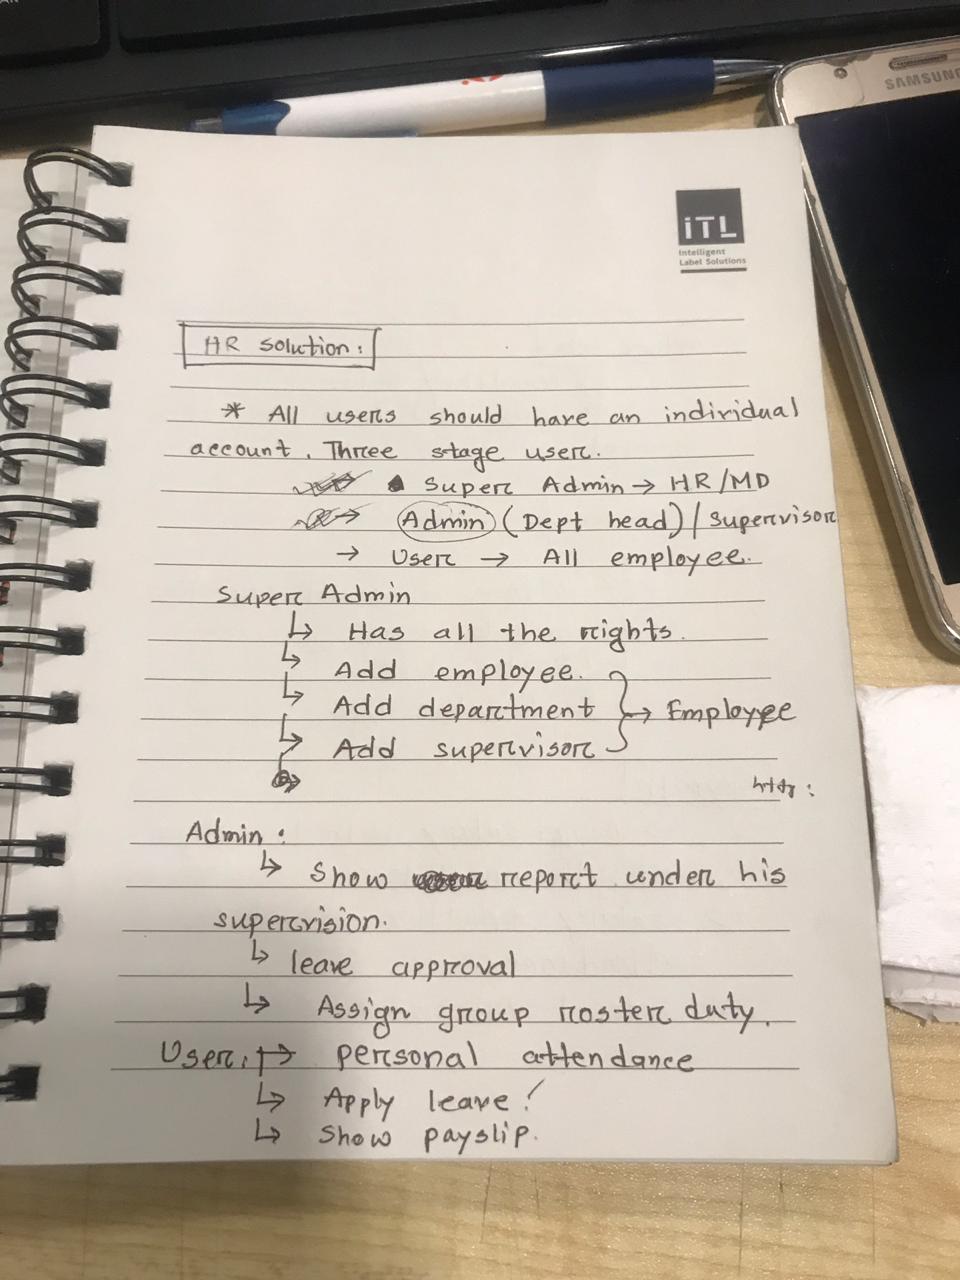 SAMSUNG
iTL
Intelligent
Label Solutions
HR solution:
* All users should have an individual
account. Three stage user.
• Super Admin → HR/MD
→ Admin (Dept head)/supervisor
→ User → All employee.
Super Admin
↳ Has all the rights.
↳ Add employee.
↳ Add department } → Employee
↳ Add supervisor
Admin:
↳ Show report under his
supervision.
↳ leave approval
↳ Assign group roster duty.
User: ↳ personal attendance
↳ Apply leave!
↳ Show payslip.